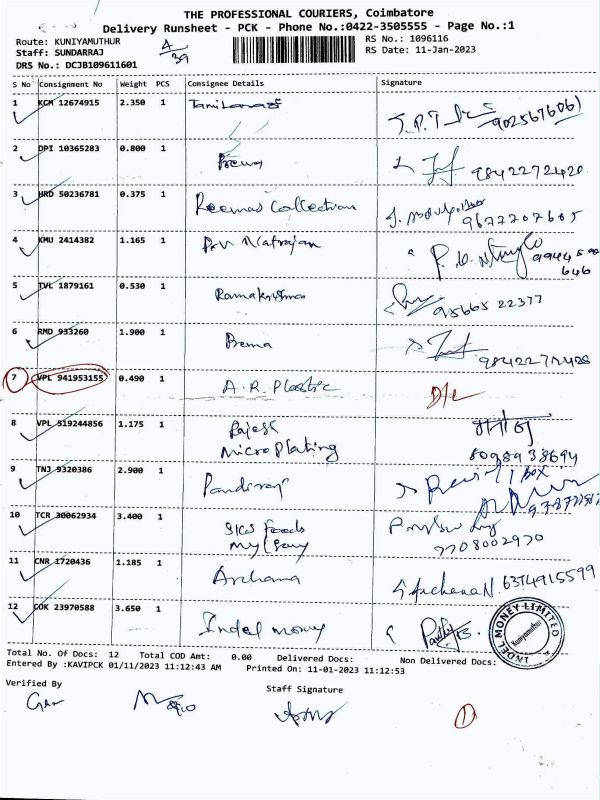 THE PROFESSIONAL COURIERS, Coimbatore
Delivery Runsheet - PCK - Phone No.:0422-3505555 - Page No.:1
Route: KUNIYAMUTHUR
RS No.: 1096116
Staff: SUNDARRAJ
RS Date: 11-Jan-2023
DRS No.: DCJB109611601
A/39
S No Consignment No Weight PCS Consignee Details Signature
1 KCM 12674915 2.350 1
9025676061
2 DPI 10365283 0.800 1 Prema 9842272420
3 HRD 50236781 0.375 1 Reemas Collection
9677707605
4 KMU 2414382 1.165 1
5 TVL 1879161 0.530 1 Ramakrishna 95665 22377
6 RMD 933260 1.900 1 Prema
7 VPL 941953155 0.490 1 A.R. Plastic D/L
8 VPL 519244856 1.175 1 Rajesh
Microplating 8098938694
9 TNJ 9320386 2.900 1 Pandiraj
10 TCR 30062934 3.400 1
7708002970
11 CNR 1720436 1.185 1 Archana S Archana N. 6374915599
12 COK 23970588 3.650 1 Indel money
INDEL MONEY LIMITED
Kuniyamuthur
Total No. Of Docs: 12 Total COD Amt: 0.00 Delivered Docs: Non Delivered Docs:
Entered By :KAVIPCK 01/11/2023 11:12:43 AM Printed On: 11-01-2023 11:12:53
Verified By
Staff Signature
1